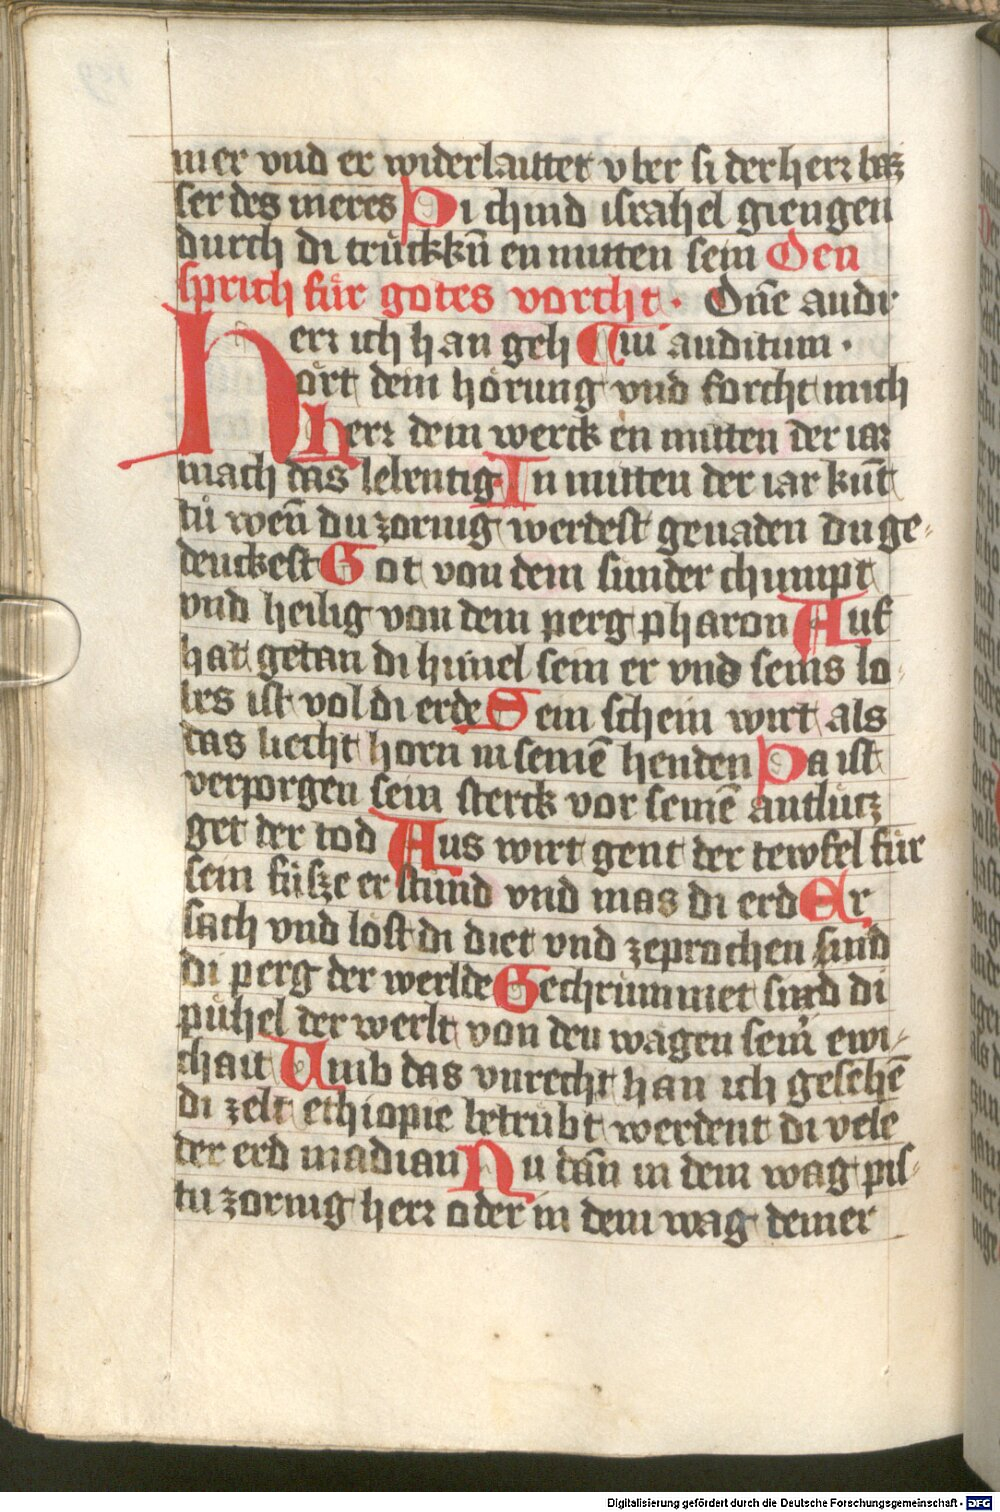 mer vnd er widerlauttet vber si der herr baz
ser des meres Di chind israhel giengen
durch di trůckkñ en mitten sein Den
sprich får gotes vorcht · Dñe audi
herr ich han geh Tui auditum ·
ört dein hörung vnd forcht mich
Herr dein werck en mitten der iar
mach das lebentig In mitten der iar kunt
tů weñ du zornig werdest genaden du ge-
denckest Got von dem sunder chumpt
vnd heilig von dem perg pharon Auf
hat getan di himel sein er vnd seins lo-
bes ist vol di erde Sein schein wirt als
das liecht horn in seinē henden Da ist
verporgen sein sterck vor seinē antlutz
get der tod Aus wirt gent der tewfel für
sein füsze er stund vnd mas di erd Er
sach vnd lost di diet vnd zeprochen sind
di perg der werlde Gechrummet sind di
pühel der werlt von den wagen seiñ ewi-
chait Umb das vnrecht han ich gesehē
di zelt ethiopie betrübt werdent di vele
der erd madian Nu dāñ in dem wag pis-
tu zornig herr oder in dem wag deiner
Digitalisierung gefördert durch die Deutsche Forschungsgemeinschaft - DFG